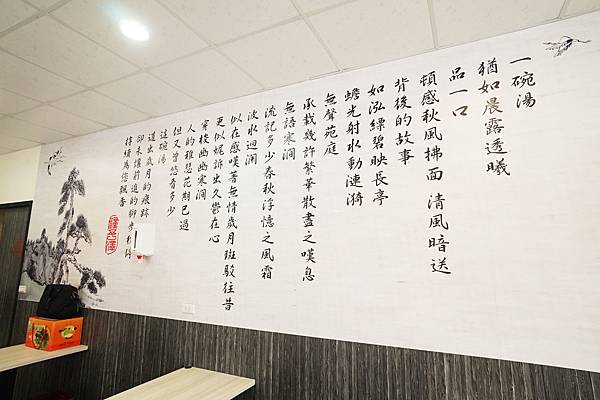 一碗湯
猶如晨露透曦
品一口
頓感秋風拂面 清風暗送
背後的故事
如泓縹碧映長亭
蟾光射水動漣漪
無聲苑庭
承載幾許繁華散盡之嘆息
無語寒澗
流記多少春秋浮憶之風霜
波水迴瀾
似在感嘆著無情歲月 斑駁往昔
更似妮訴出久鬱在心
穿梭幽幽寒澗
人的雅瑟花期已過
但又曾悠看多少
這碗湯
道出歲月的痕跡
卻未壞前進的腳步
持續為您飄香